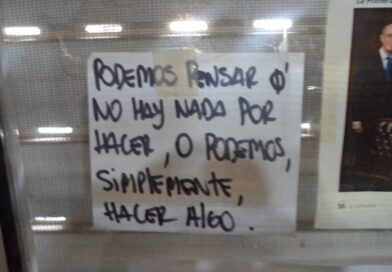 PODEMOS PENSAR Q'
NO HAY NADA POR
HACER, O PODEMOS,
SIMPLEMENTE,
HACER ALGO.